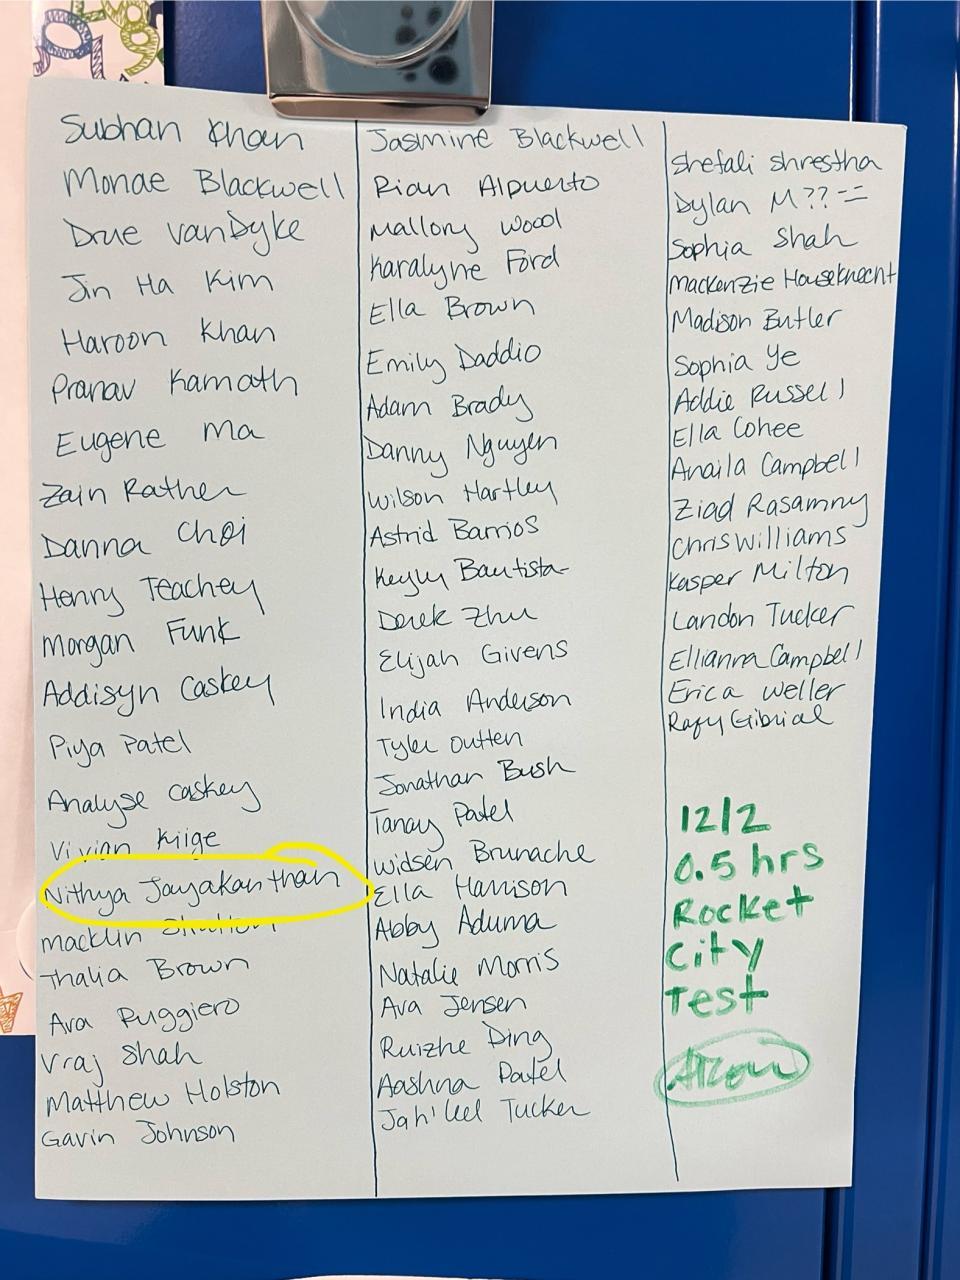 Subhan Khan
Monae Blackwell
Drue VanDyke
Jin Ha Kim
Haroon Khan
Pranav Kamath
Eugene Ma
Zain Rather
Danna Choi
Henry Teachey
Morgan Funk
Addisyn Caskey
Piya Patel
Analyse Caskey
Vivian Kiige
Nithya Jayakanthan
Macklin
Thalia Brown
Ava Ruggiero
Vraj Shah
Matthew Holston
Gavin Johnson
Jasmine Blackwell
Rian Alpuerto
Mallory Wood
Karalyne Ford
Ella Brown
Emily Daddio
Adam Brady
Danny Nguyen
Wilson Hartley
Astrid Barrios
Keyly Bautista
Derek Zhu
Elijah Givens
India Anderson
Tyler Outten
Jonathan Bush
Tanay Patel
Widsen Brunache
Ella Harrison
Abby Aduma
Natalie Morris
Ava Jensen
Ruizhe Ding
Aashna Patel
Jah'liel Tucker
Shefali Shrestha
Dylan M??==
Sophia Shah
Mackenzie Houseknecht
Madison Butler
Sophia Ye
Addie Russell
Ella Cohee
Anaila Campbell
Ziad Rasamny
Chris Williams
Kasper Milton
Landon Tucker
Ellianna Campbell
Erica Weller
Rafy Gibrial
12/2
0.5 hrs
Rocket
City
Test